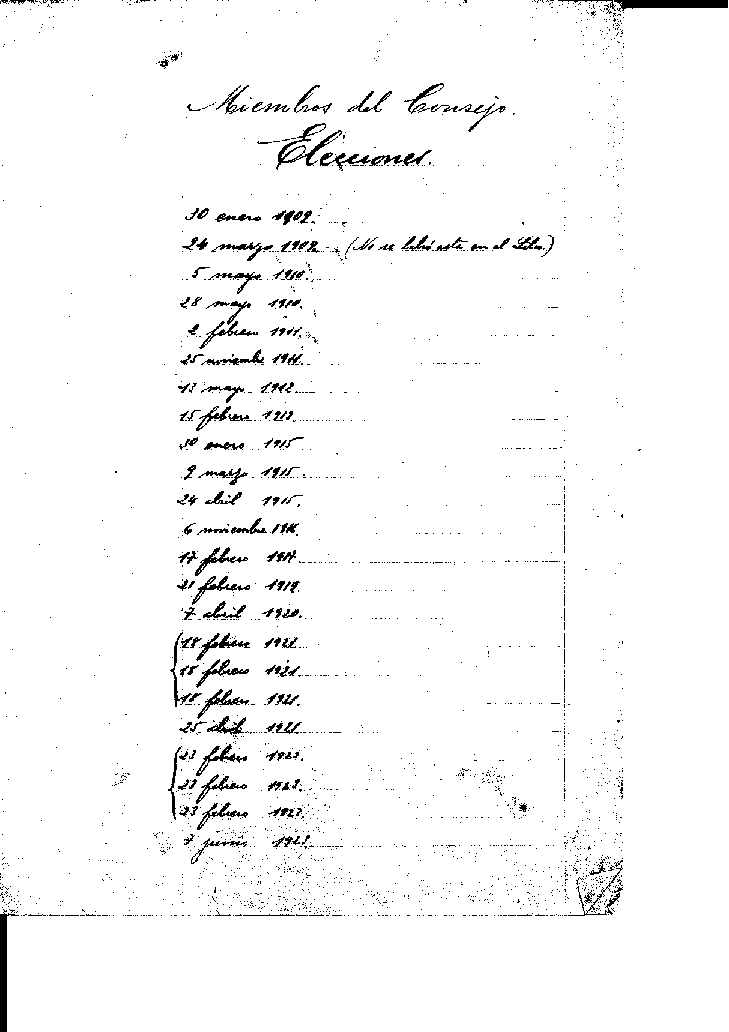 Miembros del Consejo.
Elecciones.
30 enero 1909.
24 marzo 1909. (No se en el Libro)
5 mayo 1910.
28 mayo 1910.
2 febrero 1911.
25 noviembre 1911.
13 mayo 1912.
15 febrero 1913.
30 enero 1915
9 marzo 1915.
24 abril 1915.
6 noviembre 1916.
17 febrero 1917.
21 febrero 1919.
7 abril 1920.
18 febrero 1921
18 febrero 1921.
18 febrero 1921.
25 abril 1921
23 febrero 1923.
23 febrero 1923.
23 febrero 1923.
7 junio 1923.